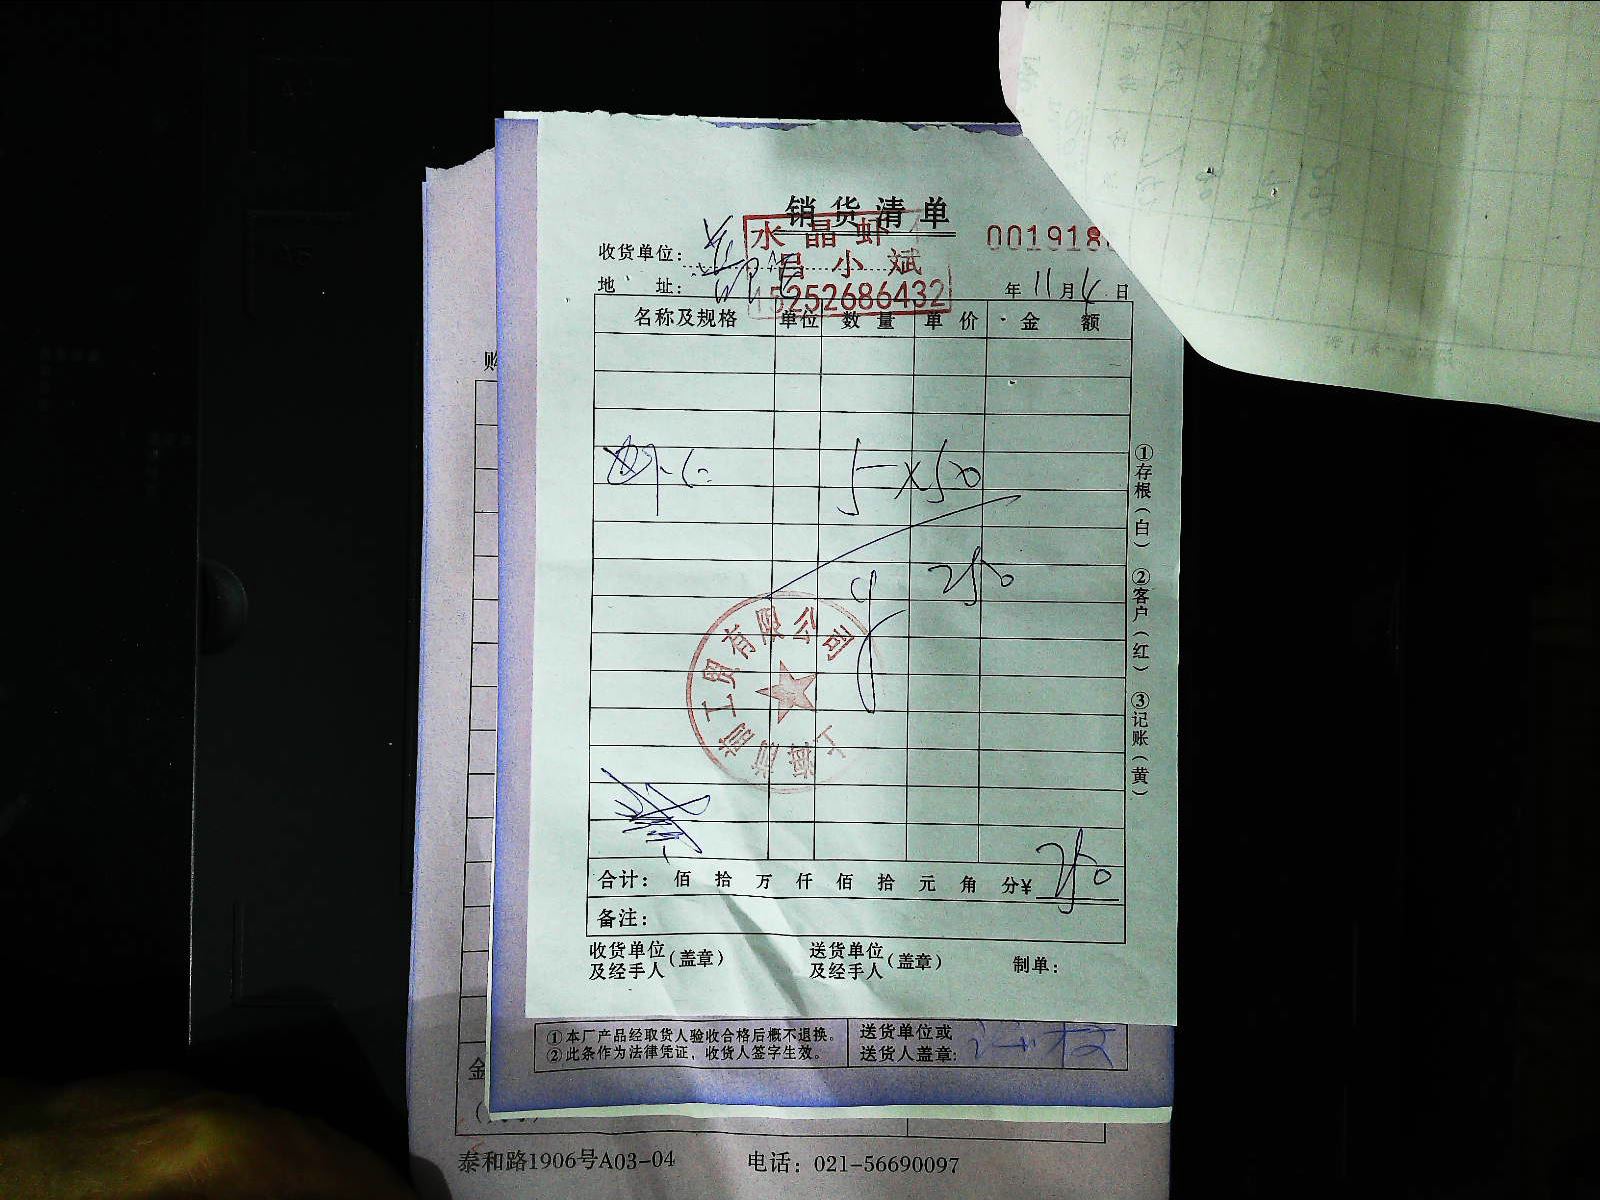 销货清单
水晶虾
吕小斌
15252686432
001918
收货单位：
地 址：
年 11 月 4 日
名称及规格 单位 数量 单价 金额
虾仁 5×50
250
工贸有限公司
上海
合计： 佰 拾 万 仟 佰 拾 元 角 分￥ 250
备注：
收货单位及经手人（盖章） 送货单位及经手人（盖章） 制单：
①存根（白） ②客户（红） ③记账（黄）
①本厂产品经取货人验收合格后概不退换。
②此条作为法律凭证，收货人签字生效。
送货单位或
送货人盖章：
购
金
泰和路1906号A03-04 电话：021-56690097